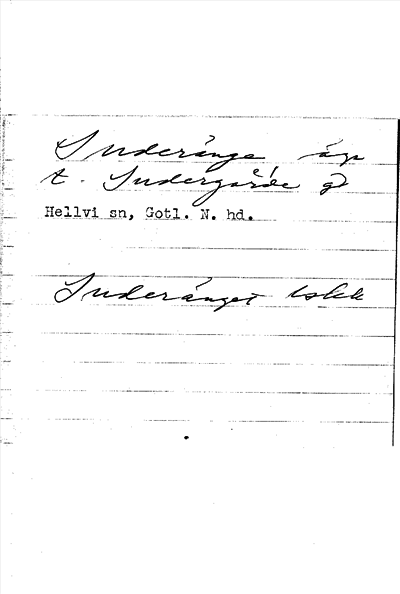 Suderänge äga
t. Sudergårde gd
Hellvi sn, Gotl. N. hd.
Suderänget